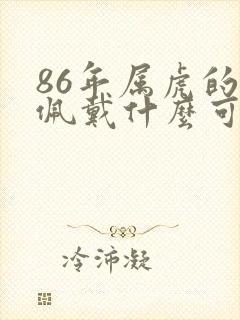 86年属虎的
佩戴什麼可
冷沛凝